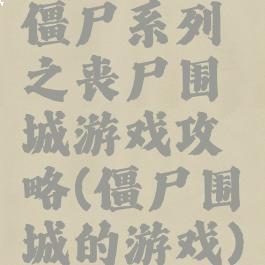 僵尸系列
之丧尸围
城游戏攻
略(僵尸围
城的游戏)